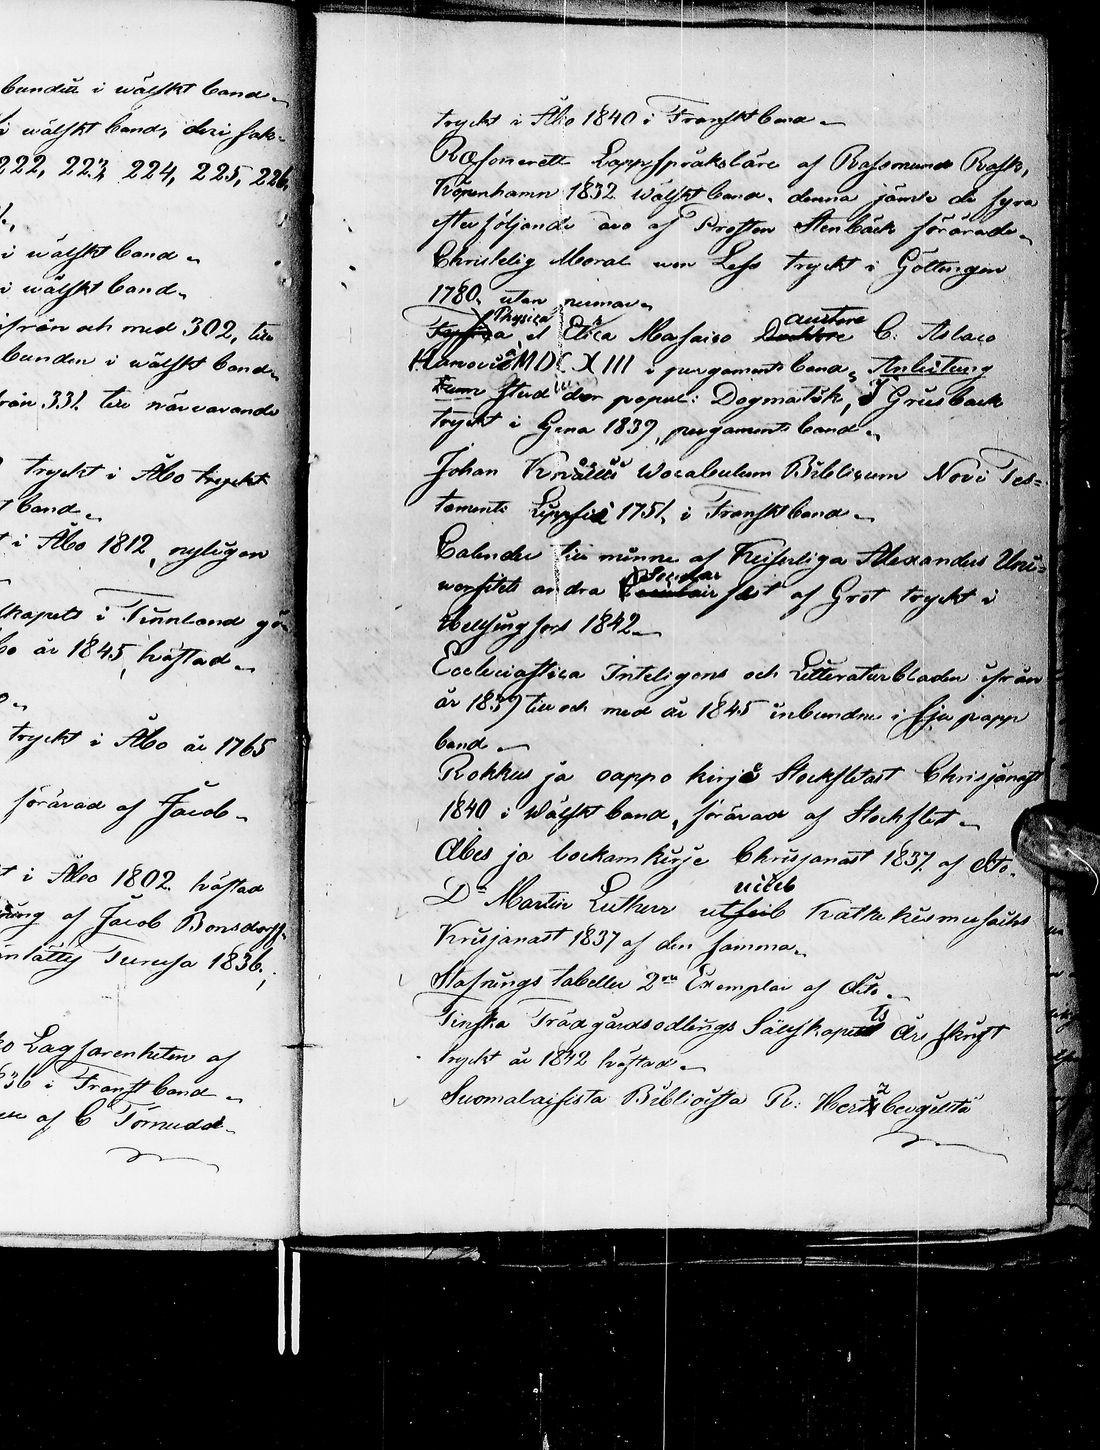 bundit i wälskt band.
i wälskt band, deri sak-
222, 223, 224, 225, 226,
i wälskt band.
i wälskt band.
ifrån och med 302, till
bunden i wälskt band.
från 331 till närvarande
tryckt i Åbo tryckt
band.
t i Åbo 1812, nyligen
lskapets i Finnland gö-
bo år 1845, häftad.
tryckt i Åbo år 1765
förärad af Jacob.
t i Åbo 1802. häftad
ning af Jacob Bonsdorff.
Turusa 1836,
Lagfarenheten af
836 i Franskt band.
af C Törnudd.
tryckt i Åbo 1840 i Franskt band.
Ræsonerett Lappsprákslære af Rassmund Rask,
Köpenhamn 1832 wälskt band. denna jämte de fyra
efterföljande äro af Prosten Stenbäck förärade.
Christelig Moral von Less tryckt i Göttingen
1780, utan numer.
Physica et Etica Mosaico austore C. Aslaco
Hanoviæ MDCXIII i pergaments band. Anleitung
zum Stud der popul: Dogmatik, Griesback
tryckt i Gena 1839, pergaments band.
Johan Wocabulum Biblicum Novi Tes=
tamenti Lippsiæ 1751, i Franskt band.
Calender till minne af Keiserliga Alexanders Uni=
wersitets andra Secular fest af Grot tryckt i
Helsingfors 1842.
Ecclesiastica Inteligens och Litteraturbladen ifrån
år 1839 till och med år 1845 inbundne i sju papp
band.
Rokkus ja oappo kirje Stockfletast Chrisjanast
1840 i wälskt band, förärad af Stockflet.
Abes ja lockamkirje Chrisjanast 1837. af dito.
Dr Martin Lutherr uceeb Kattekismusaites
Krisjanast 1837 af den samma.
Stafnings tabeller 2ra Exemplar af dito.
Finska Trädgårdsodlings Sällskapets Års skrift
tryckt år 1842 häftad.
Suomalaisista Biblioista R: Hertzbergiltä